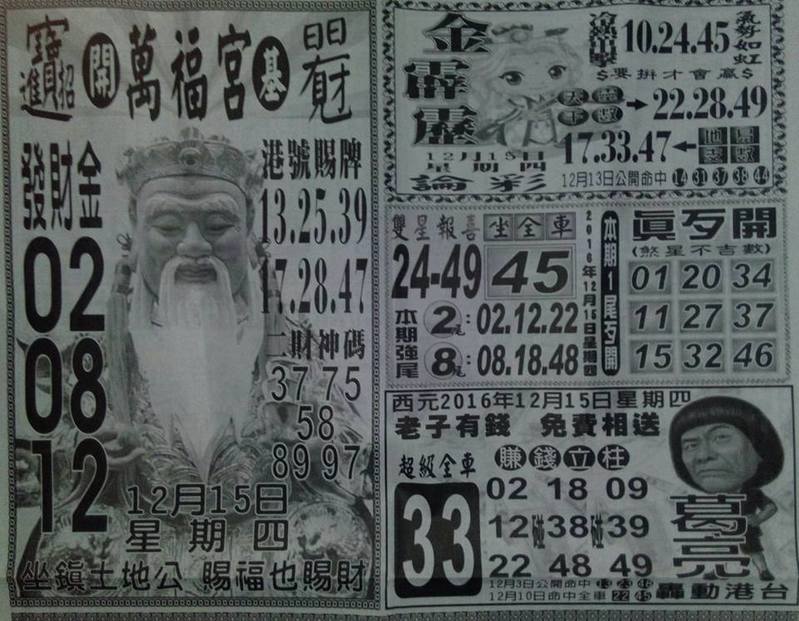 招財進寶
開 萬福宮 基
港號賜牌
發財金
13.25.39
02
17.28.47
08
二財神碼
37 75
58
12
89 97
12月15日
星期四
坐鎮土地公 賜福也賜財
金霹靂
冷熱出擊 10.24.45 氣勢如虹
$要拼才會贏$
22.28.49
17.33.47
12月15日
星期四
論彩
12月13日公開命中 14 31 37 38 44
雙星報喜 坐全車
24-49 45
本期強尾
2尾:02.12.22
8尾:08.18.48
2016年12月15日星期四
本期1尾歹開
真歹開
(煞星不吉數)
01 20 34
11 27 37
15 32 46
西元2016年12月15日星期四
老子有錢 免費相送
超級全車 賺錢立柱
33
02 18 09
12碰38碰39
22 48 49
葛亮
12月3日公開命中 13 23 46
12月10日命中全車 22 45
轟動港台